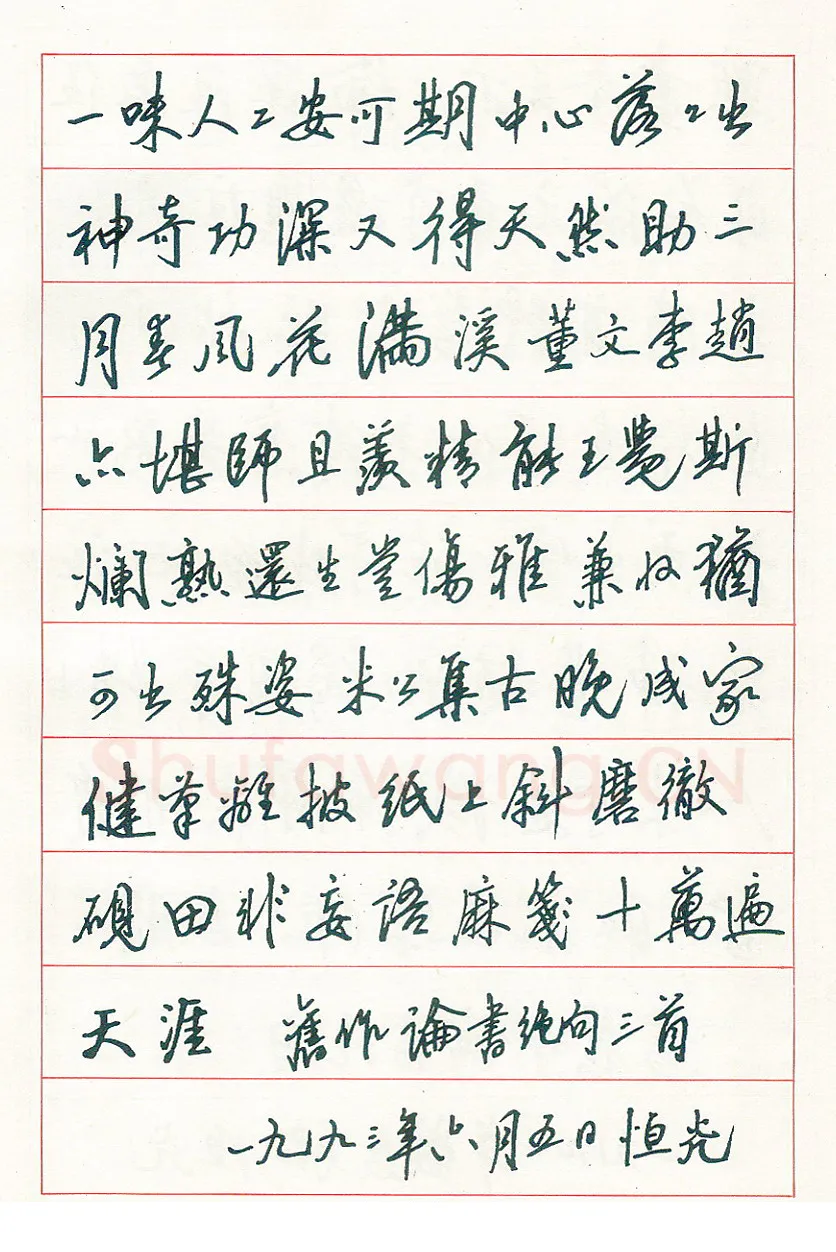 一味人工安可期中心落々出
神奇功深又得天然助三
月春风花满溪董文李趙
亦堪師且羨精能王覺斯
爛熟還生豈傷雅兼收猶
可出殊姿米公集古晚成家
健筆離披紙上斜磨徹
硯田非妄語麻箋十萬遍
天涯 舊作論書絶句三首
一九九三年六月五日恒光
Shufawang.CN